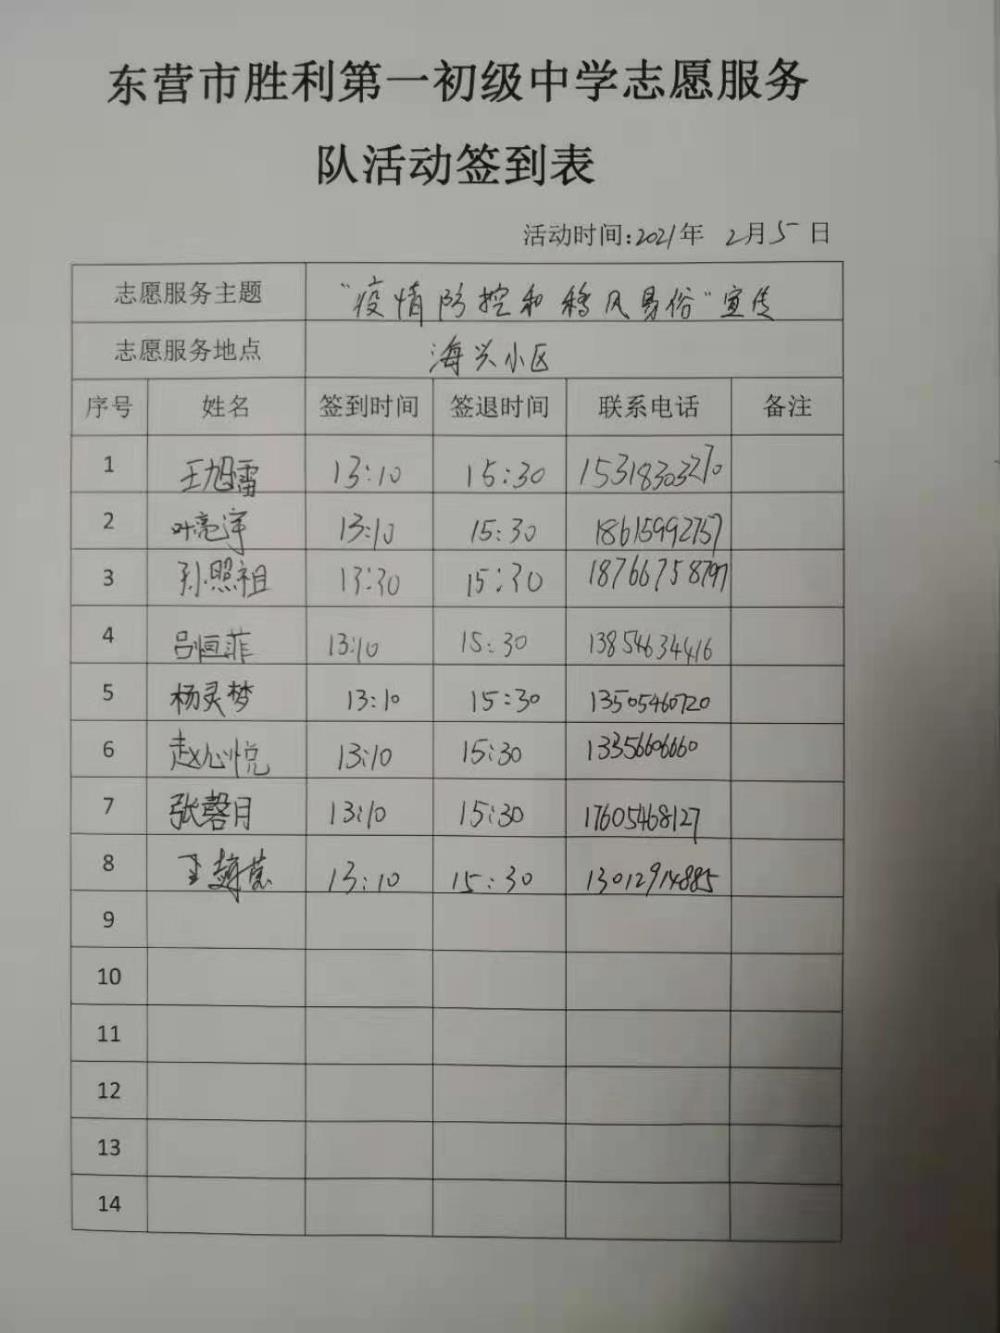 东营市胜利第一初级中学志愿服务
队活动签到表
活动时间:2021年 2月5日
志愿服务主题 "疫情防控和移风易俗"宣传
志愿服务地点 海兴小区
序号 姓名 签到时间 签退时间 联系电话 备注
1 王旭雷 13:10 15:30 15318303270
2 叶亮宇 13:10 15:30 18615992757
3 孙照祖 13:30 15:30 18766758797
4 吕恒菲 13:10 15:30 13854634416
5 杨灵梦 13:10 15:30 13505460720
6 赵心悦 13:10 15:30 13356606660
7 张馨月 13:10 15:30 17605468127
8 王 13:10 15:30 13012914885
9
10
11
12
13
14